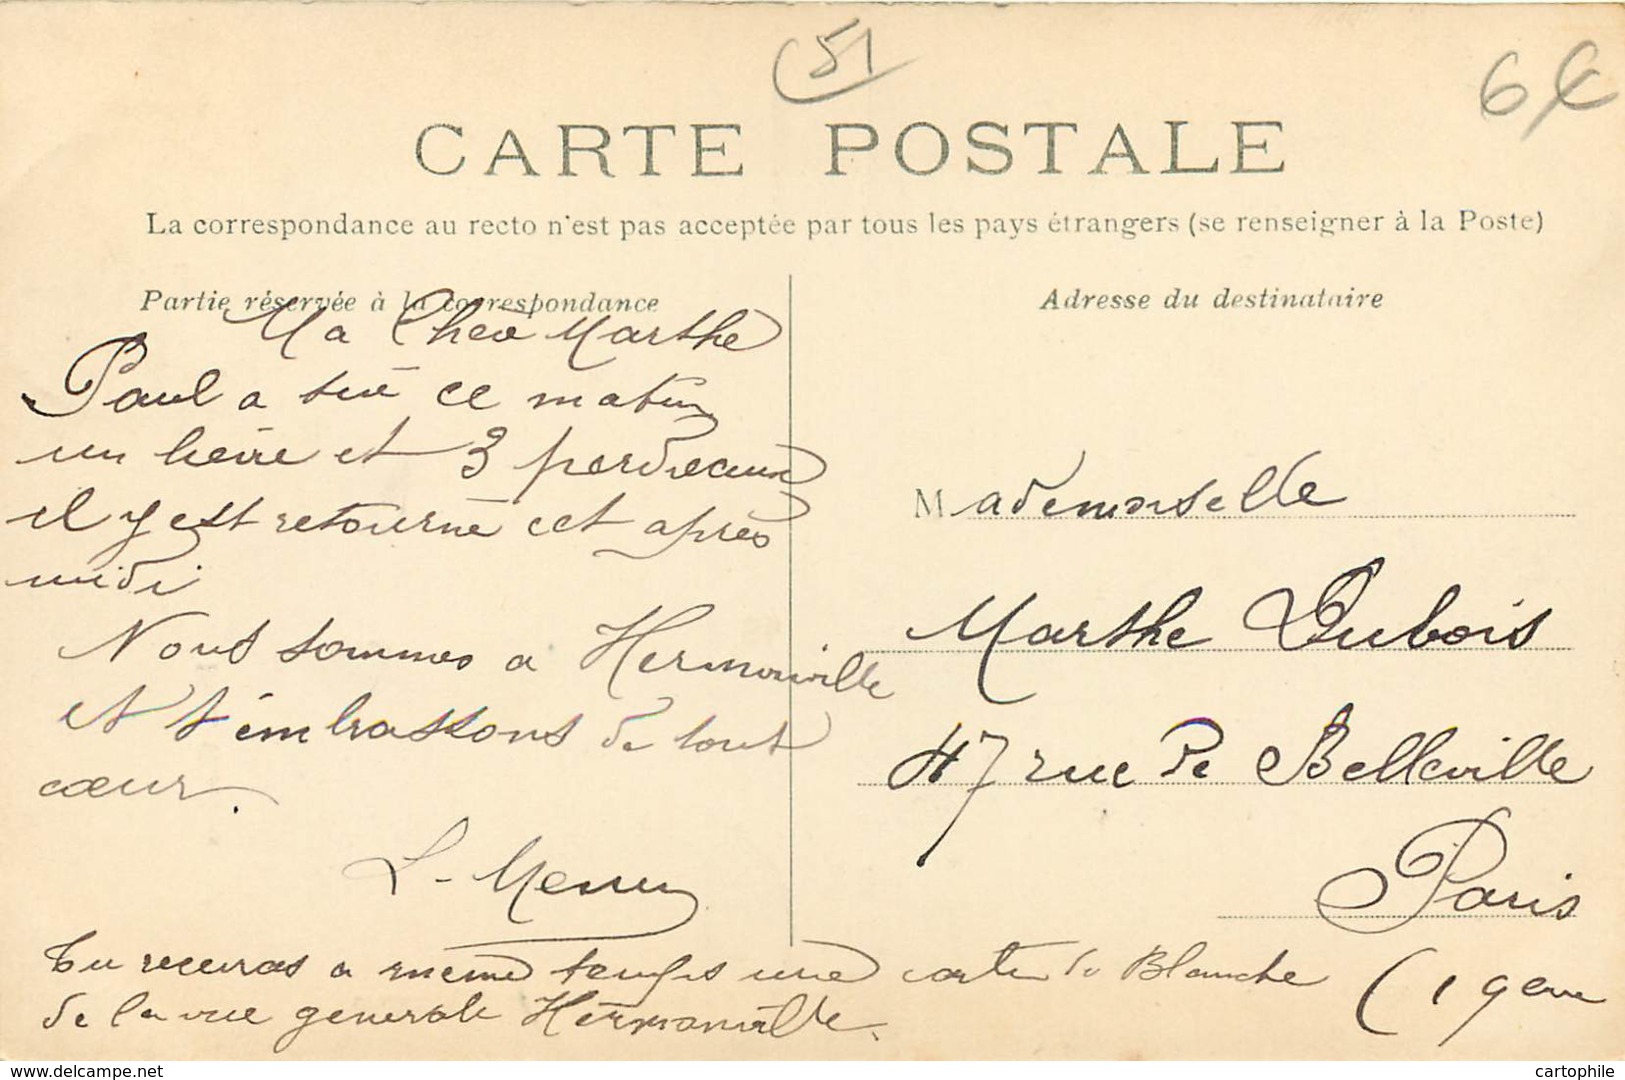 51
6€
CARTE POSTALE
La correspondance au recto n'est pas acceptée par tous les pays étrangers (se renseigner à la Poste)
Partie réservée à la correspondance
Ma Cher Marthe
Paul a tué ce matin
un lièvre et 3 perdreaux
il y est retourné cet après
midi
Nous sommes a Hermonville
et t'embrassons de tout
cœur.
Tu recevras a même temps une carte de Blanche
de la vue generale Hermonville.
Adresse du destinataire
Mademoiselle
Marthe Dubois
47 rue de Belleville
Paris
(19eme
delcampe.net
cartophile